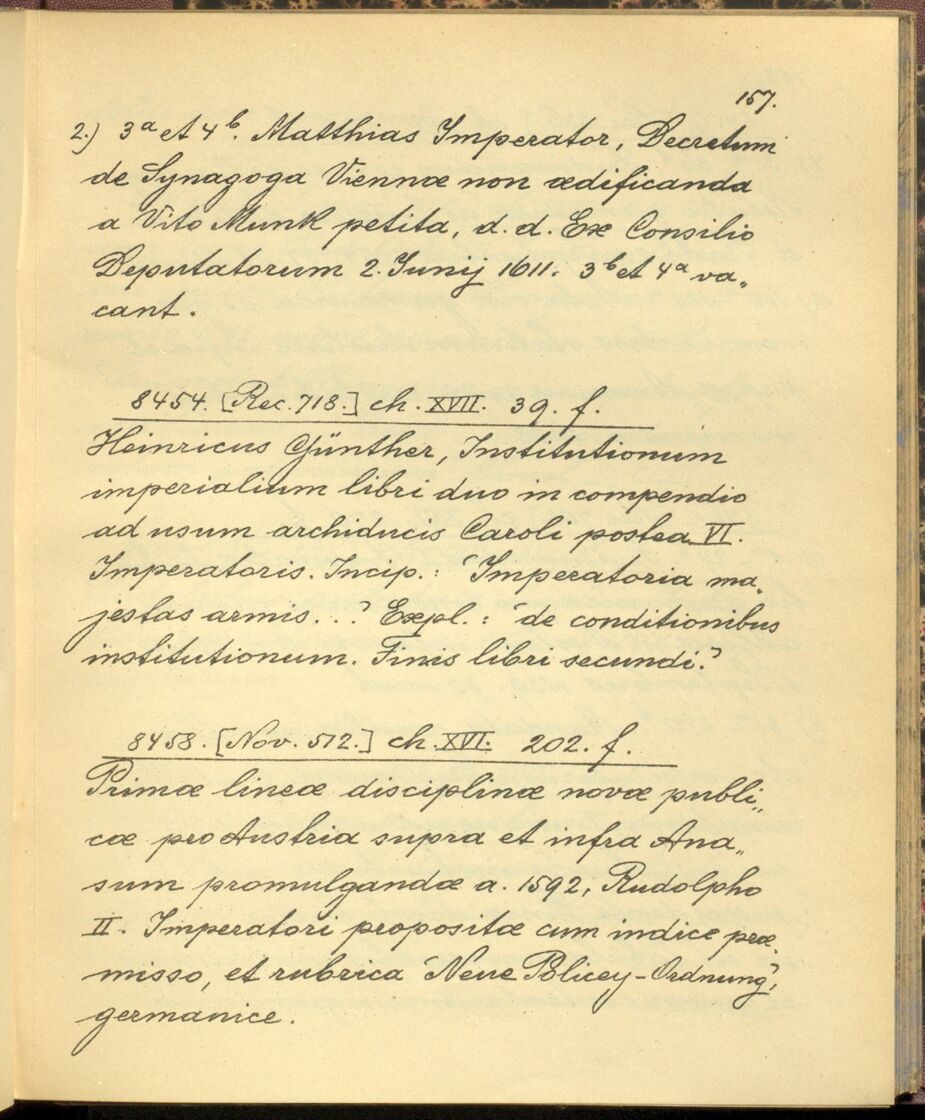 157.
2.) 3ª et 4ᵇ. Matthias Imperator, Decretum
de Synagoga Viennæ non ædificanda
a Vito Munk petita, d. d. Ex Consilio
Deputatorum 2. Junij 1611. 3ᵇ et 4ª va„
cant.
8454. [Rec. 718.] ch. XVII. 39. f.
Heinricus Günther, Institutionum
imperialium libri duo in compendio
ad usum archiducis Caroli postea VI.
Imperatoris. Incip.: ‘Imperatoria ma„
jestas armis...’ Expl.: ‘de conditionibus
institutionum. Finis libri secundi.’
8458. [Nov. 512.] ch. XVI. 202. f.
Primæ lineæ disciplinæ novæ publi„
cæ pro Austria supra et infra Ana„
sum promulgandæ a. 1592, Rudolpho
II. Imperatori propositæ cum indice præ„
misso, et rubrica ‘Neue Policey-Ordnung’,
germanice.